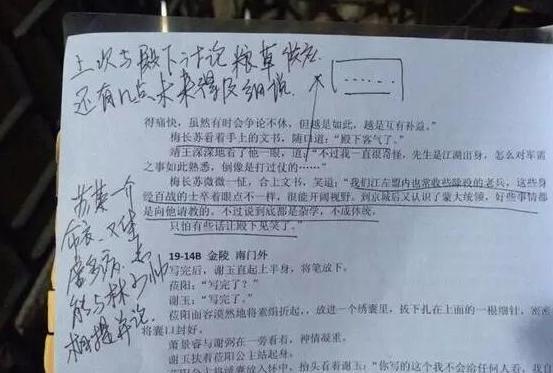 上次与殿下讨论粮草
还有几点未来得及细说
……
得痛快，虽然有时会争论不休，但越是如此，越是互有补益。”
梅长苏看着手上的文书，随口道：“殿下客气了。”
靖王深深地看了他一眼，道，“不过我一直很奇怪，先生是江湖出身，怎么对军需
之事如此熟悉，倒像是打过仗的……”
梅长苏微微一怔，合上文书，笑道：“我们江左盟内也常收些除役的老兵，这些身
经百战的士卒着眼点不一样，很能开阔视野。到京城后又认识了蒙大统领，好些事情都
是向他请教的。不过说到底都是杂学，不成体统，
只怕有些话让殿下见笑了。”
苏某一介
布衣，又体
弱多病，怎
能与林少帅
相提并论
19-14B 金陵 南门外
写完后，谢玉直起上半身，将笔放下。
莅阳：“写完了？”
谢玉：“写完了。”
莅阳面容漠然地将素绢折起，，放进一个绣囊里，拔下扎在上面的一根细针，密密
将囊口封好。
萧景睿与谢弼在一旁看着，神情凝重。
谢玉扶着莅阳公主站起身。
莅阳公主将绣囊放入怀中，抬头看着谢玉：“你写的这个我不会给任何人看，我